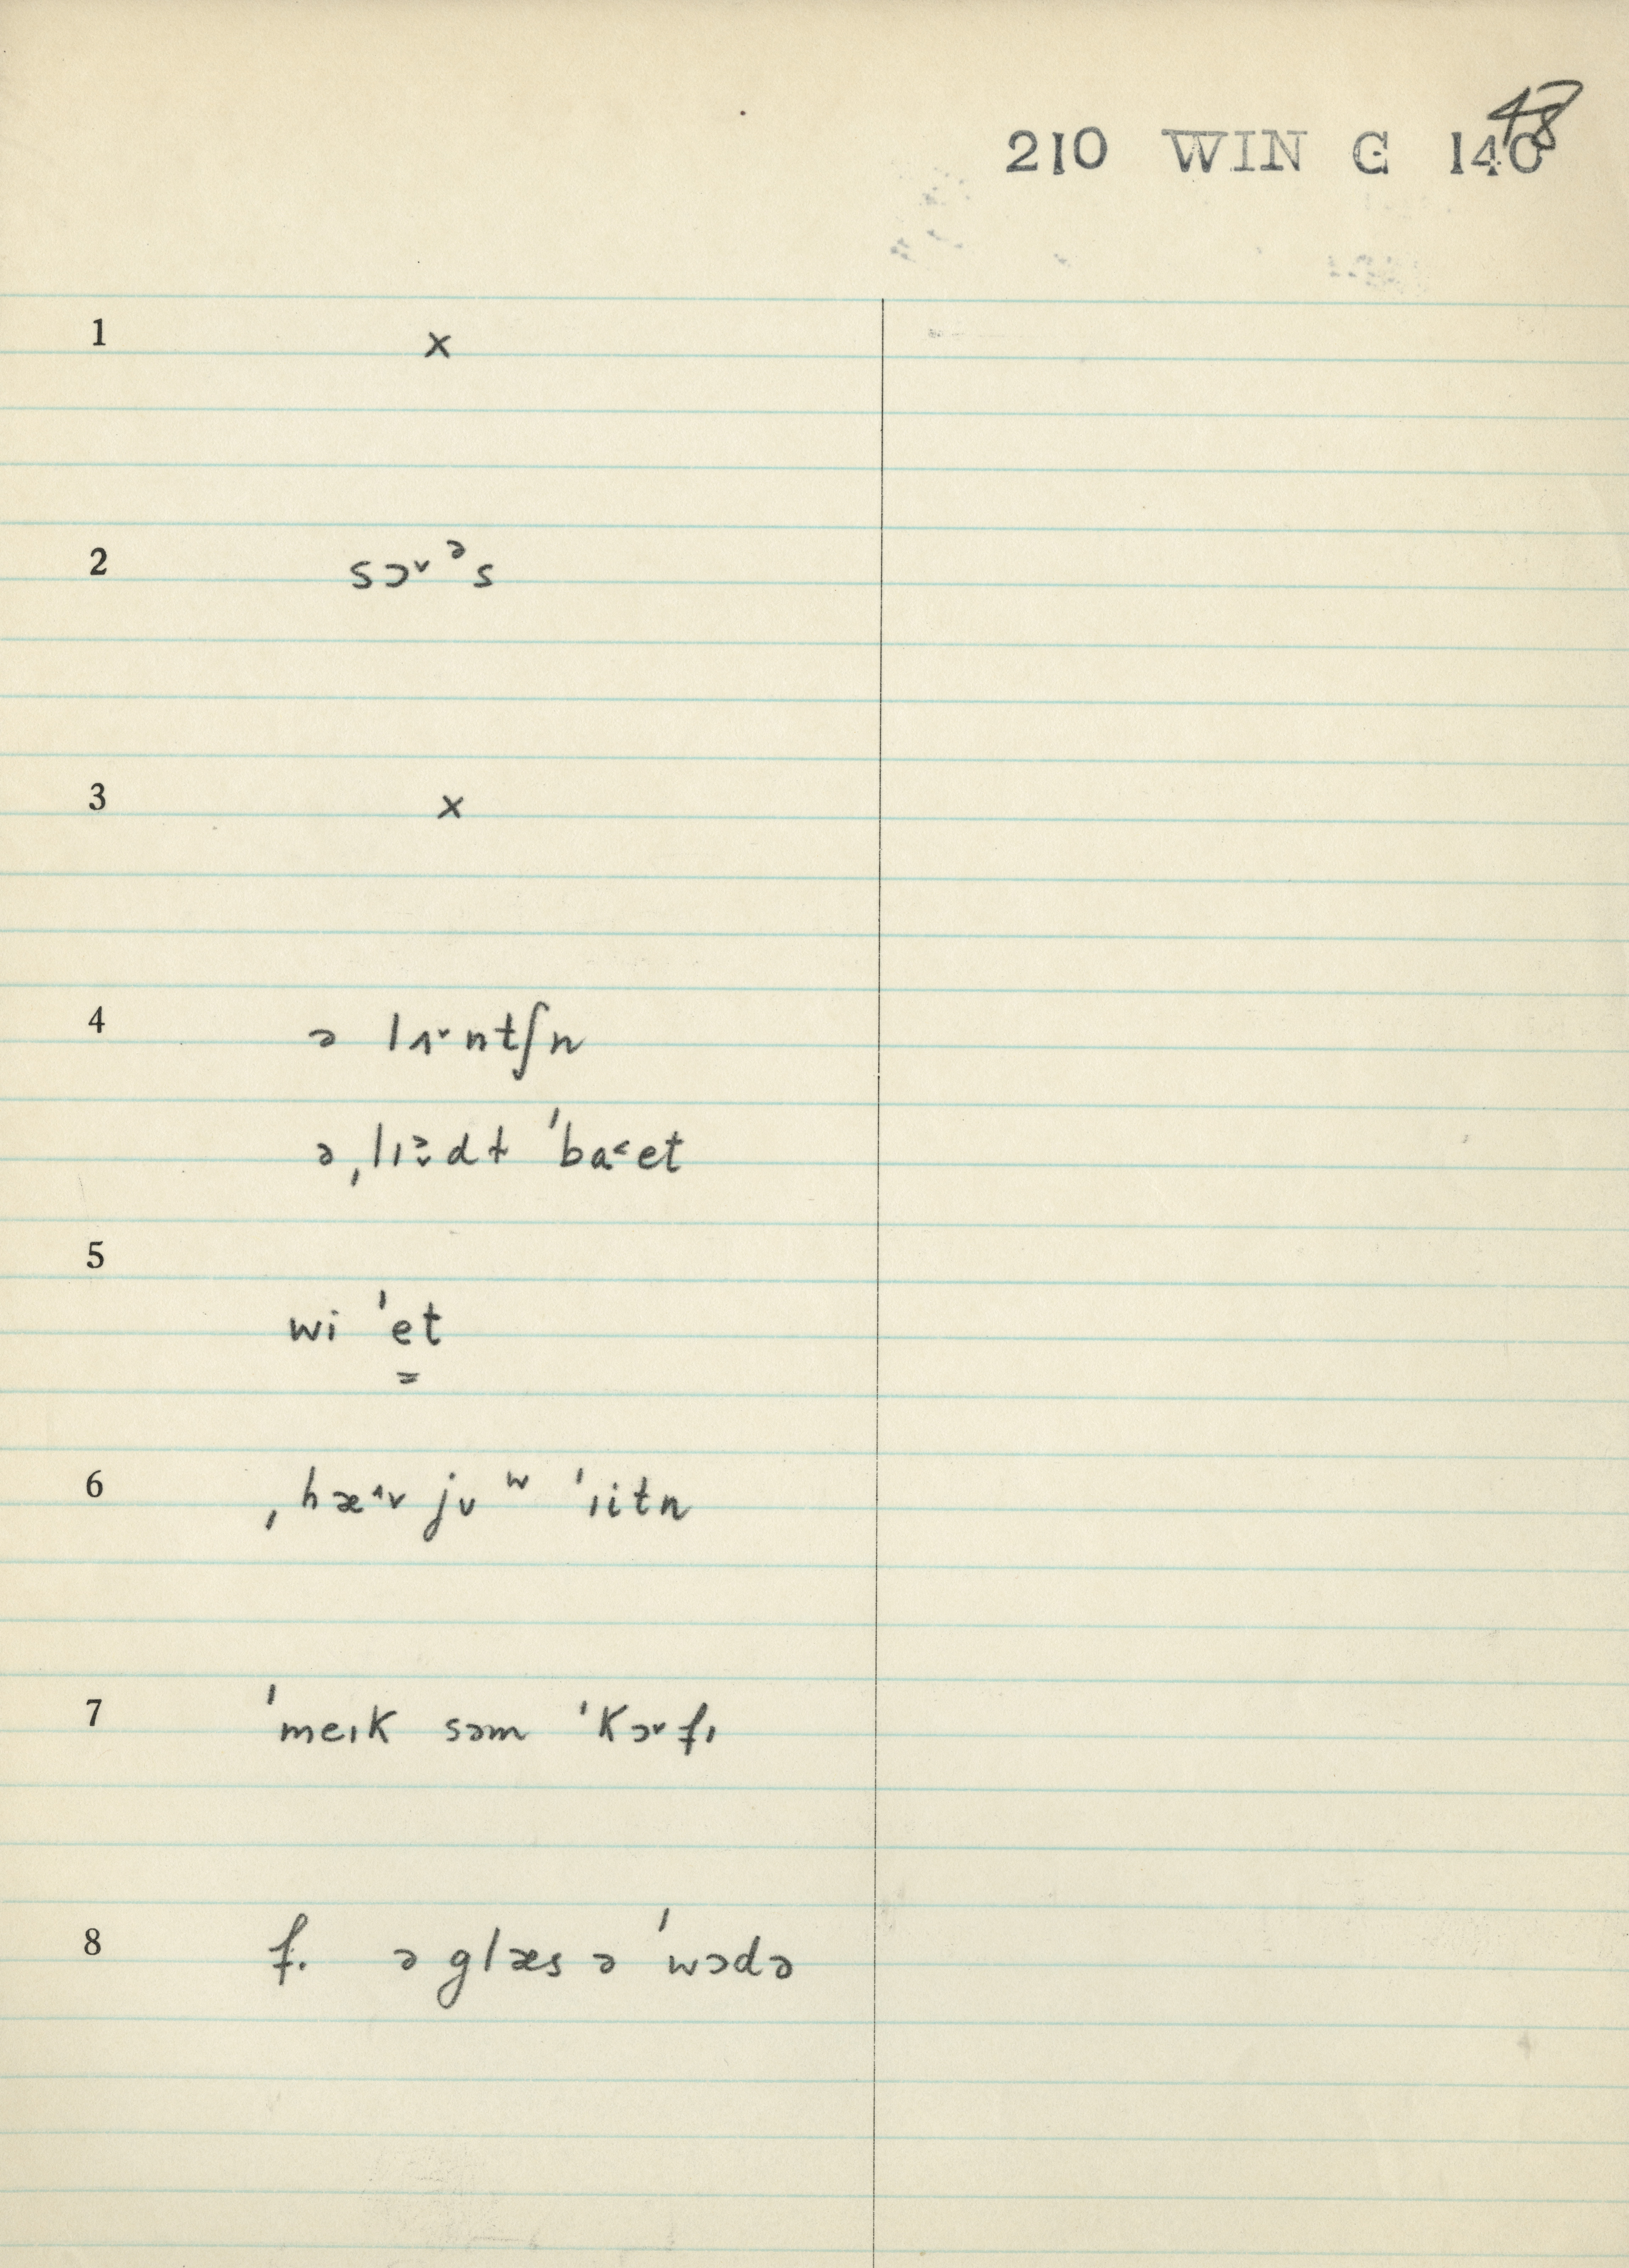 48
210 WIN G 140
1 x
2 sɔ˅ᵊs
3 x
4 ə lʌ˅ntʃn
ə ˌlɪ̵dt ˈba˂et
5
wi ˈet
6 ˌhæ˄v jʊ ʷ ˈiitn
7 ˈmeɪk səm ˈkɔ˅fɪ
8 f. ə glæs ə ˈwɔdə